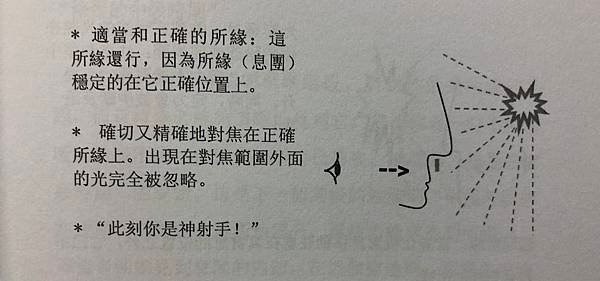 * 適當和正確的所緣：這
所緣還行，因為所緣（息團）
穩定的在它正確位置上。
* 確切又精確地對焦在正確
所緣上。出現在對焦範圍外面
的光完全被忽略。
* “此刻你是神射手！”